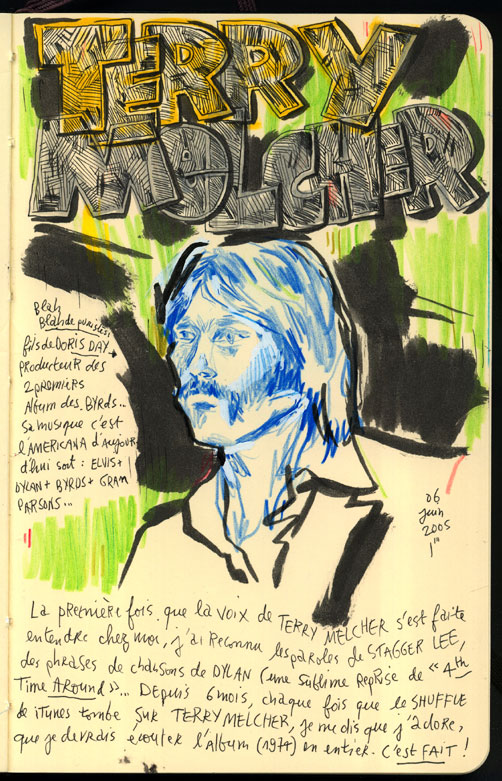 TERRY
MELCHER
Blah
Blah de puristes:
fils de DORIS DAY.
PRODUCTEUR des
2 PREMIERS
Album des BYRDS...
Sa musique c'est
l'AMERICANA d'aujour
d'hui soit : ELVIS +
DYLAN + BYRDS + GRAM
PARSONS...
06
juin
2005
La première fois que la voix de TERRY MELCHER s'est faite
entendre chez moi, j'ai reconnu les paroles de STAGGER LEE,
des phrases de chansons de DYLAN (une sublime reprise de "4th
Time Around")... Depuis 6 mois, chaque fois que le SHUFFLE
de iTunes tombe sur TERRY MELCHER, je me dis que j'adore,
que je devrais écouter l'album (1974) en entier. C'est FAIT !